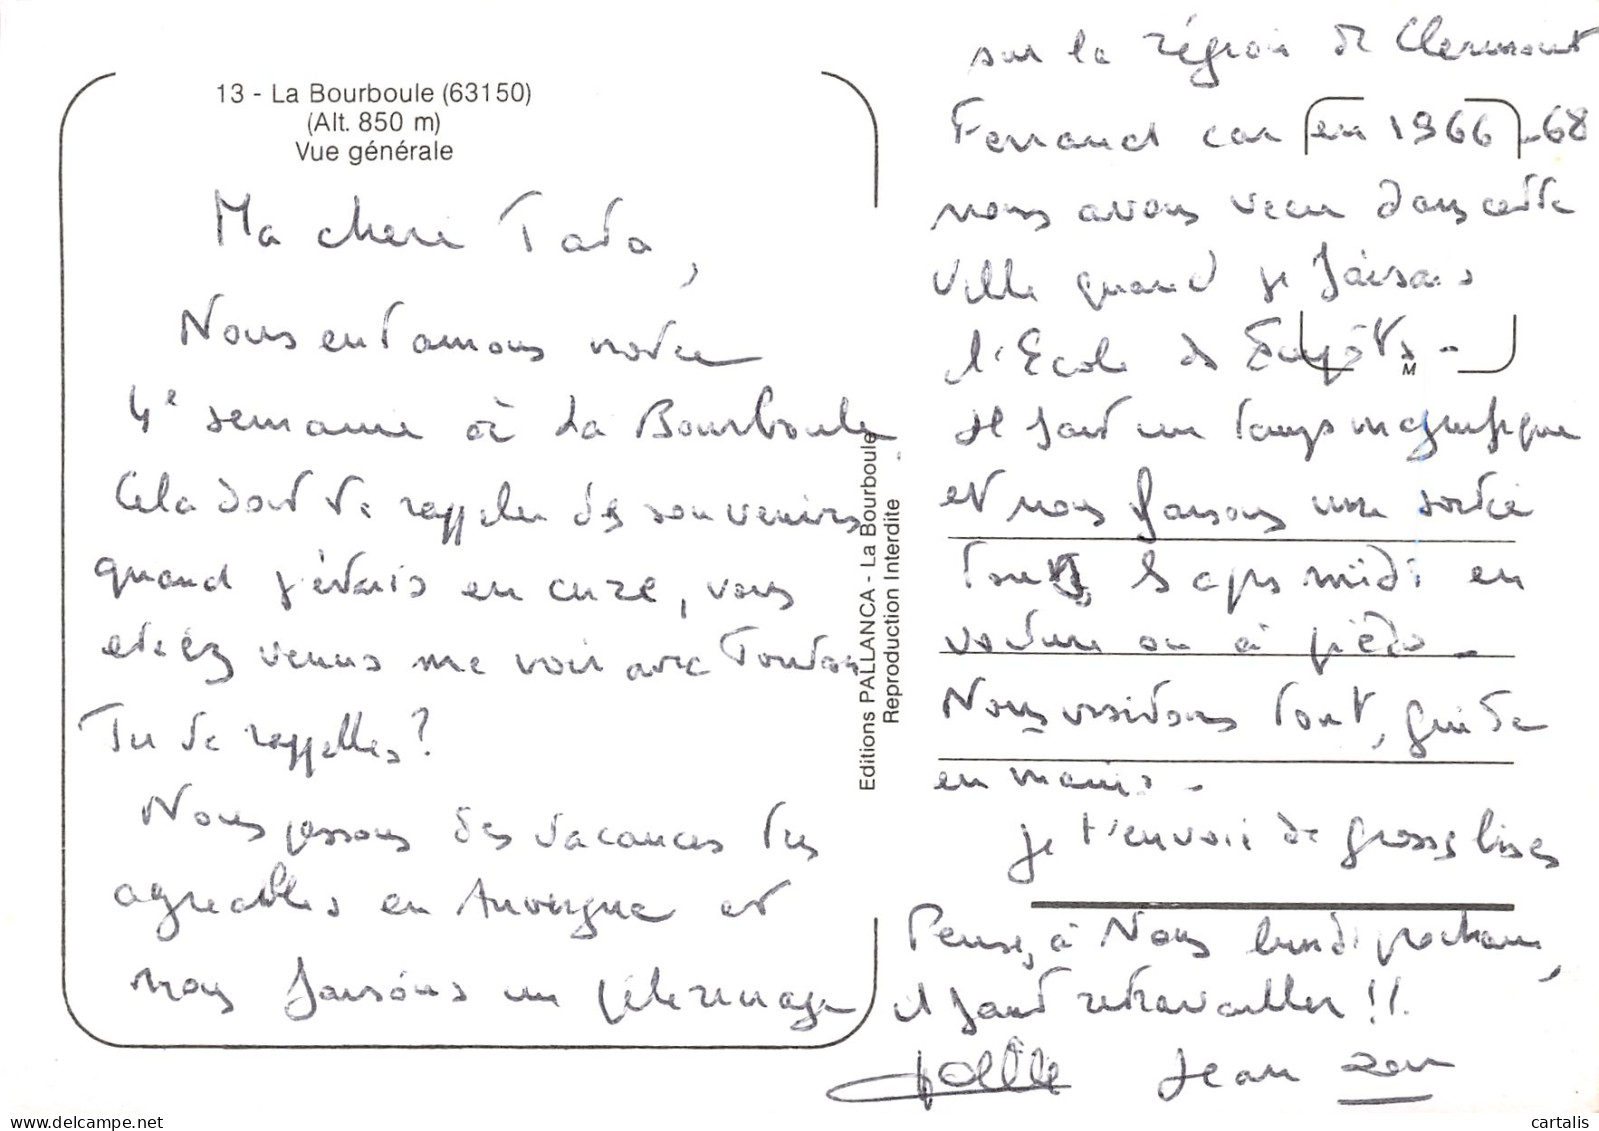 13 - La Bourboule (63150)
(Alt. 850 m)
Vue générale
Ma chere Tata,
Nous entamons notre
4e semaine à La Bourboule
Cela doit te rappeler des souvenirs
quand j'étais en cure, vous
etiez venus me voir avec Tonton
Tu te rappelles?
Nous passons des vacances tres
agreables en Auvergne et
nous faisons un pélerinage
sur la région de Clermont
Ferrand car en 1966-68
nous avons vecu dans cette
ville quand je faisais
l'Ecole des Impôts -
Il fait un temps magnifique
et nous faisons une sortie
tous les aprs midi en
voiture ou à pieds -
Nous visitons tout, guide
en mains -
je t'envoie de grosses bises
Pense à Nous lundi prochain,
il faut retravailler!!
Joëlle Jean
Editions PALLANCA - La Bourboule
Reproduction Interdite
M
cartalis